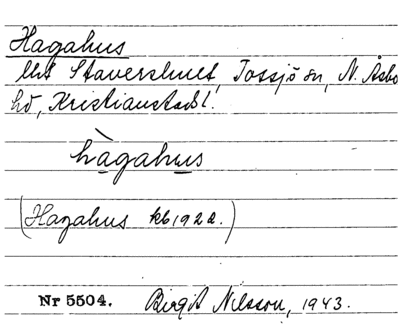 Hagahus
lht Stavershult, Tossjö sn, N. Åsbo
hd, Kristianstads l.
hàgahus
(Hagahus kb 1922.)
Nr 5504. Birgit Nilsson, 1943.